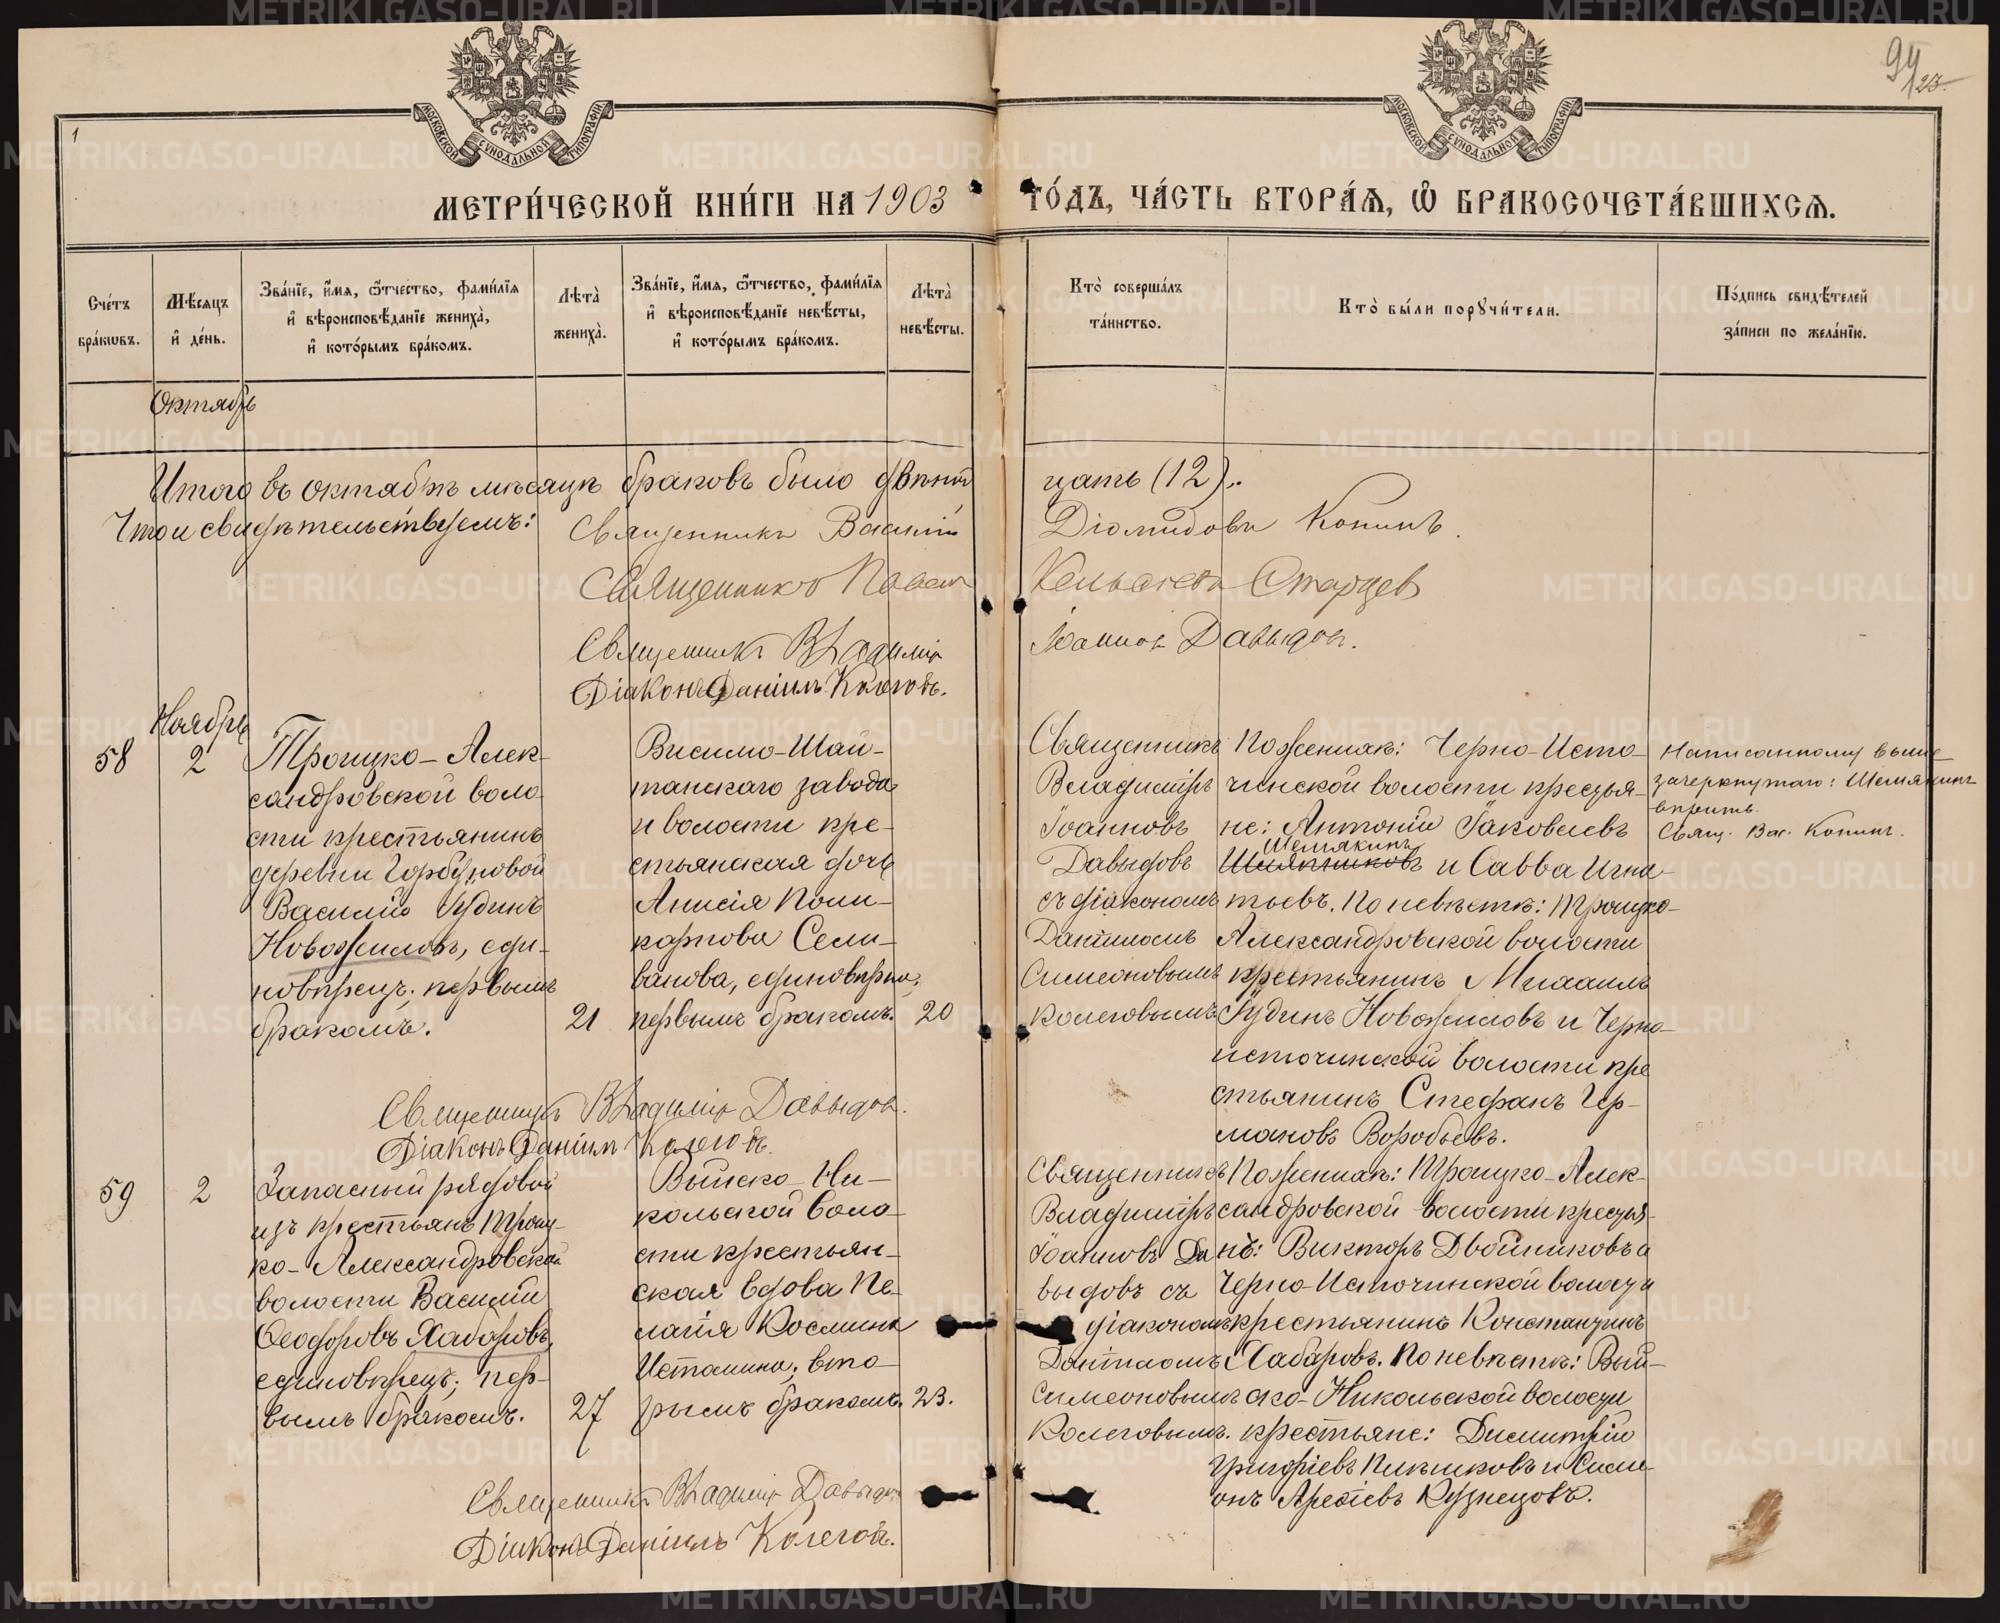 94
123.
1
МОСКОВСКОЙ СѴНОДАЛЬНОЙ ТИПОГРАФІИ
МОСКОВСКОЙ СѴНОДАЛЬНОЙ ТИПОГРАФІИ
МЕТРИ́ЧЕСКОЙ КНИ́ГИ НА 1903 ГО́ДЪ, ЧА́СТЬ ВТОРА́Ѧ, Ѽ БРАКОСОЧЕТА́ВШИХСѦ.
Сче́тъ бра́кѡвъ.
Мѣ́сѧцъ и҆ де́нь.
Зва́нїе, и҆́мѧ, ѻ҆́тчество, фами́лїѧ и҆ вѣроисповѣ́данїе жениха̀, и҆ кото́рымъ бра́комъ.
Лѣта̀ жениха̀.
Зва́нїе, и҆́мѧ, ѻ҆́тчество, фами́лїѧ и҆ вѣроисповѣ́данїе невѣ́сты, и҆ кото́рымъ бра́комъ.
Лѣта̀ невѣ́сты.
Кто̀ соверша́лъ та́инство.
Кто̀ бы́ли порꙋчи́тели.
По́дпись свидѣ́телей за́писи по жела́нїю.
Октябрь
Итого въ октябрѣ мѣсяцѣ браковъ было двѣнад
цать (12).
Что и свидѣтельствуемъ:
Священникъ Василій
Діомидовъ Копинъ.
Священникъ Павел
Старцев
Священникъ Владиміръ
Іоаннов Давыдов.
Діаконъ Даніилъ Колеговъ.
Ноябрь
58
2
Троицко-Алек-
сандровской воло
сти крестьянинъ
деревни Горбуновой
Василій Іудинъ
Новожиловъ, еди-
новѣрецъ; первымъ
бракомъ.
21
Висимо-Шай-
танскаго завода
и волости кре-
стьянская дочь
Анисія Поли-
карпова Сели-
ванова, единовѣрка,
первымъ бракомъ.
20
Священникъ
Владиміръ
Іоанновъ
Давыдовъ
съ діакономъ
Даніиломъ
Симеоновымъ
Колеговымъ
По женихѣ: Черно-Исто-
чинской волости крестья-
не: Антоній Іаковлевъ
Шемякинъ
Шляпниковъ и Савва Игна-
тьевъ. По невѣстѣ: Троицко-
Александровской волости
крестьянинъ Михаилъ
Іудинъ Новожиловъ и Черно-
источинской волости кре
стьянинъ Стефанъ Гер-
мановъ Воробьевъ.
Написанному выше
зачеркнутаго: Шемякинъ
вѣрить.
Свящ. Вас. Копинъ.
Священникъ Владиміръ Давыдов.
Діаконъ Даніилъ Колеговъ.
59
2
Запасный рядовой
изъ крестьянъ Троиц-
ко-Александровской
волости Василій
Ѳеодоровъ Хабаровъ,
единовѣрецъ; пер-
вымъ бракомъ.
27
Выйско-Ни-
кольской воло-
сти крестьян-
ская вдова Пе-
лагія Космина
Истомина; вто-
рымъ бракомъ.
23.
Священникъ
Владиміръ
Іоанновъ Да
выдовъ съ
діакономъ
Даніиломъ
Симеоновымъ
Колеговымъ.
По женихѣ: Троицко-Алек-
сандровской волости крестья-
нъ: Викторъ Двойниковъ и
Черно-Источинской волости
крестьянинъ Константинъ
Хабаровъ. По невѣстѣ: Вый-
ско-Никольской волости
крестьяне: Димитрій
Григоріевъ и Симе-
онъ Кузнецовъ.
Священникъ Владиміръ Давыдов
Діаконъ Даніилъ Колеговъ.
METRIKI.GASO-URAL.RU